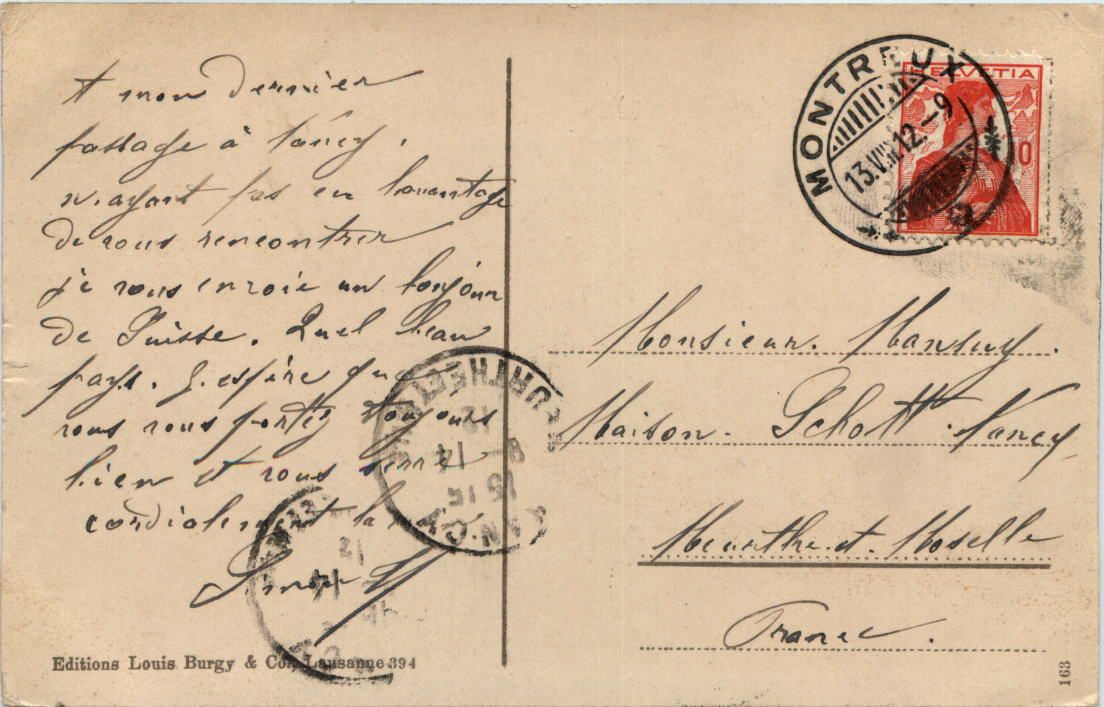 A mon dernier
passage à Nancy,
n'ayant pas eu l'avantage
de vous rencontrer
je vous envoie un bonjour
de Suisse. Quel beau
pays. J'espère que
vous vous portez toujours
bien et vous serre
cordialement la main
MONTREUX
13.VIII.12.-9
HELVETIA
10
Monsieur. Mansuy.
Maison. Schott. Nancy
Meurthe. et. Moselle
France.
NANCY
MEURTHE ET M
15 15
14 - 8
12
14
12
Editions Louis Burgy & Co. Lausanne 394
163